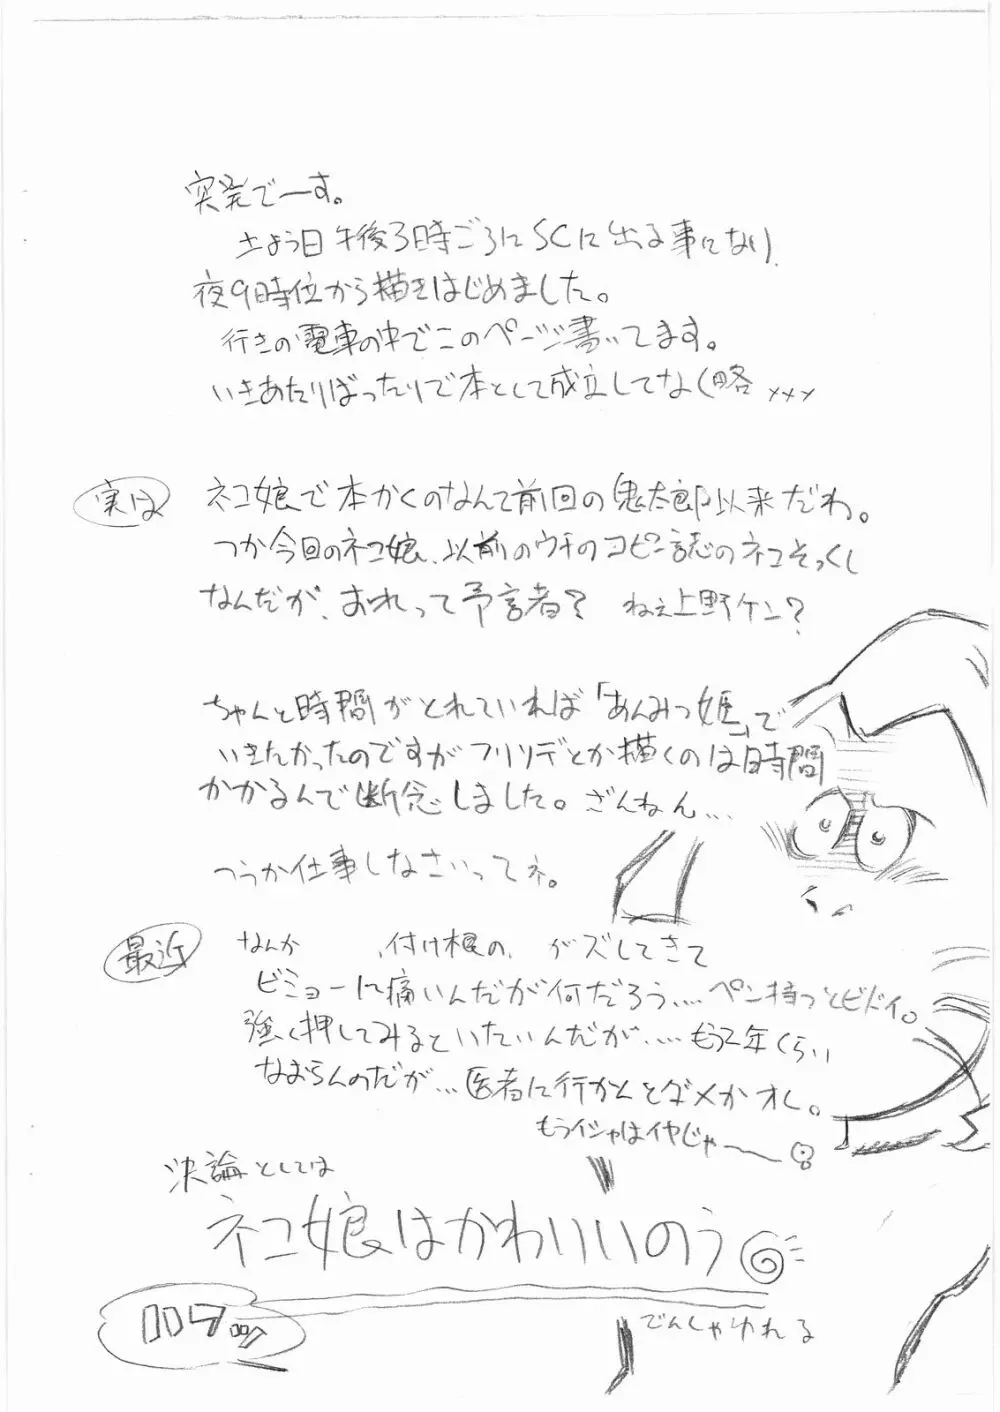 突発でーす。
土よう日午後3時ごろにSCに出る事になり、
夜9時位から描きはじめました。
行きの電車の中でこのページ書いてます。
いきあたりばったりで本として成立してなく(略 xxx
実は
ネコ娘で本かくのなんて前回の鬼太郎以来だわ。
つか今回のネコ娘、以前のウチのコピー誌のネコそっくし
なんだが、おれって予言者? ねぇ上野ケン?
ちゃんと時間がとれていれば「あんみつ姫」で
いきたかったのですがフリソデとか描くのは時間
かかるんで断念しました。ざんねん…
つうか仕事しなさいってネ。
最近
なんか 、付け根の、がズしてきて
ビミョーに痛いんだが何だろう….ペン持つとビドイ。
強く押してみるといたいんだが….もう2年くらい
なおらんのだが…医者に行かんとダメかオレ。
もうイシャはイヤじゃ〜
決論としては
ネコ娘はかわいいのう
でんしゃゆれる